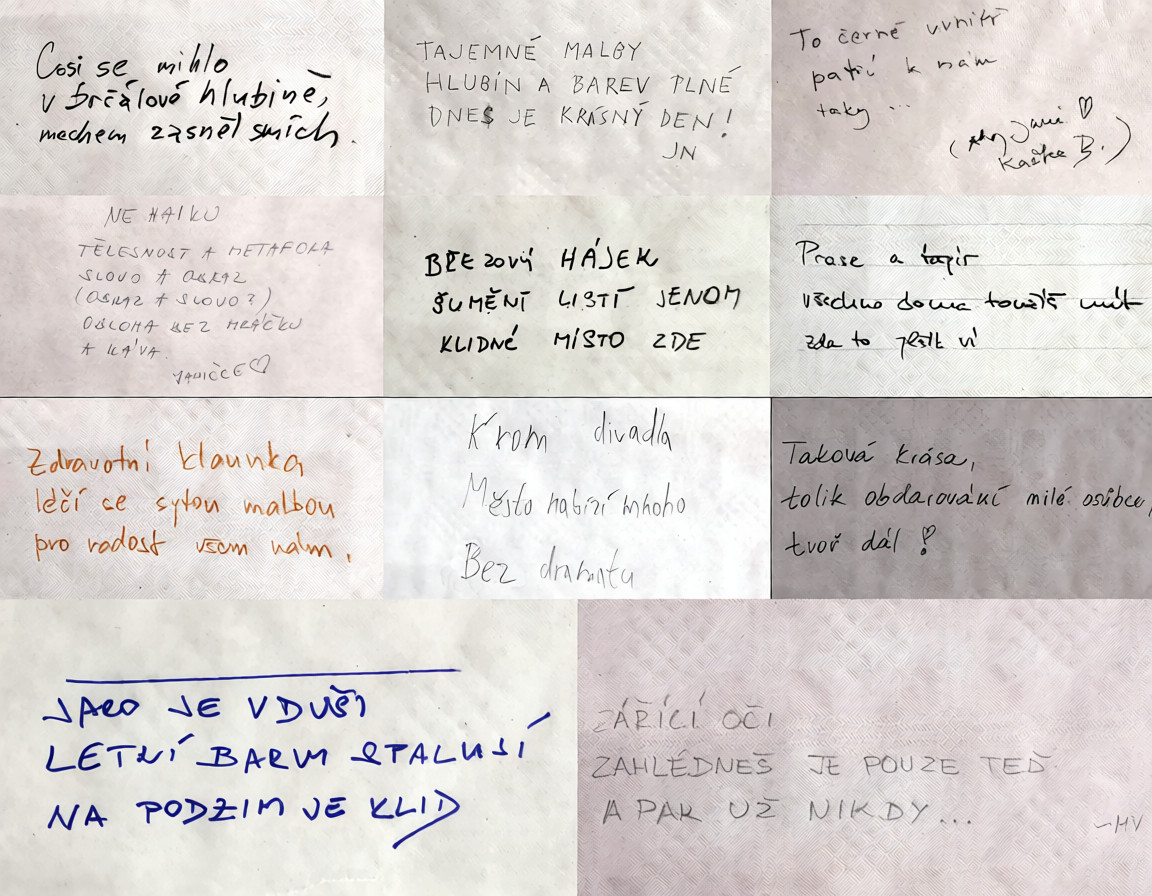 Cosi se mihlo
v brčálové hlubině,
mechem zasněl smích.
TAJEMNÉ MALBY
HLUBIN A BAREV PLNÉ
DNES JE KRÁSNÝ DEN!
JN
To černé uvnitř
patří k nám
taky ...
Janě ♡
Kačka B.)
NE HAIKU
TĚLESNOST A METAFORA
SLOVO A OBRAZ
(OBRAZ A SLOVO?)
OBLOHA BEZ MRÁČKU
A KÁVA.
JANIČCE♡
BŘEZOVÝ HÁJEK
ŠUMĚNÍ LISTÍ JENOM
KLIDNÉ MÍSTO ZDE
Prase a tapír
všechno doma mít
zda to ví
Zdravotní klaunka
léčí se sytou malbou
pro radost všem nám.
Krom divadla
Město nabízí mnoho
Bez dramatu
Taková krása,
tolik obdarování milé osůbce,
tvoř dál!
JAKO JE V DUŠI
LETNÍ BARVY STALUSÍ
NA PODZIM JE KLID
ZÁŘÍCÍ OČI
ZAHLÉDNEŠ JE POUZE TEĎ
A PAK UŽ NIKDY...
~MV